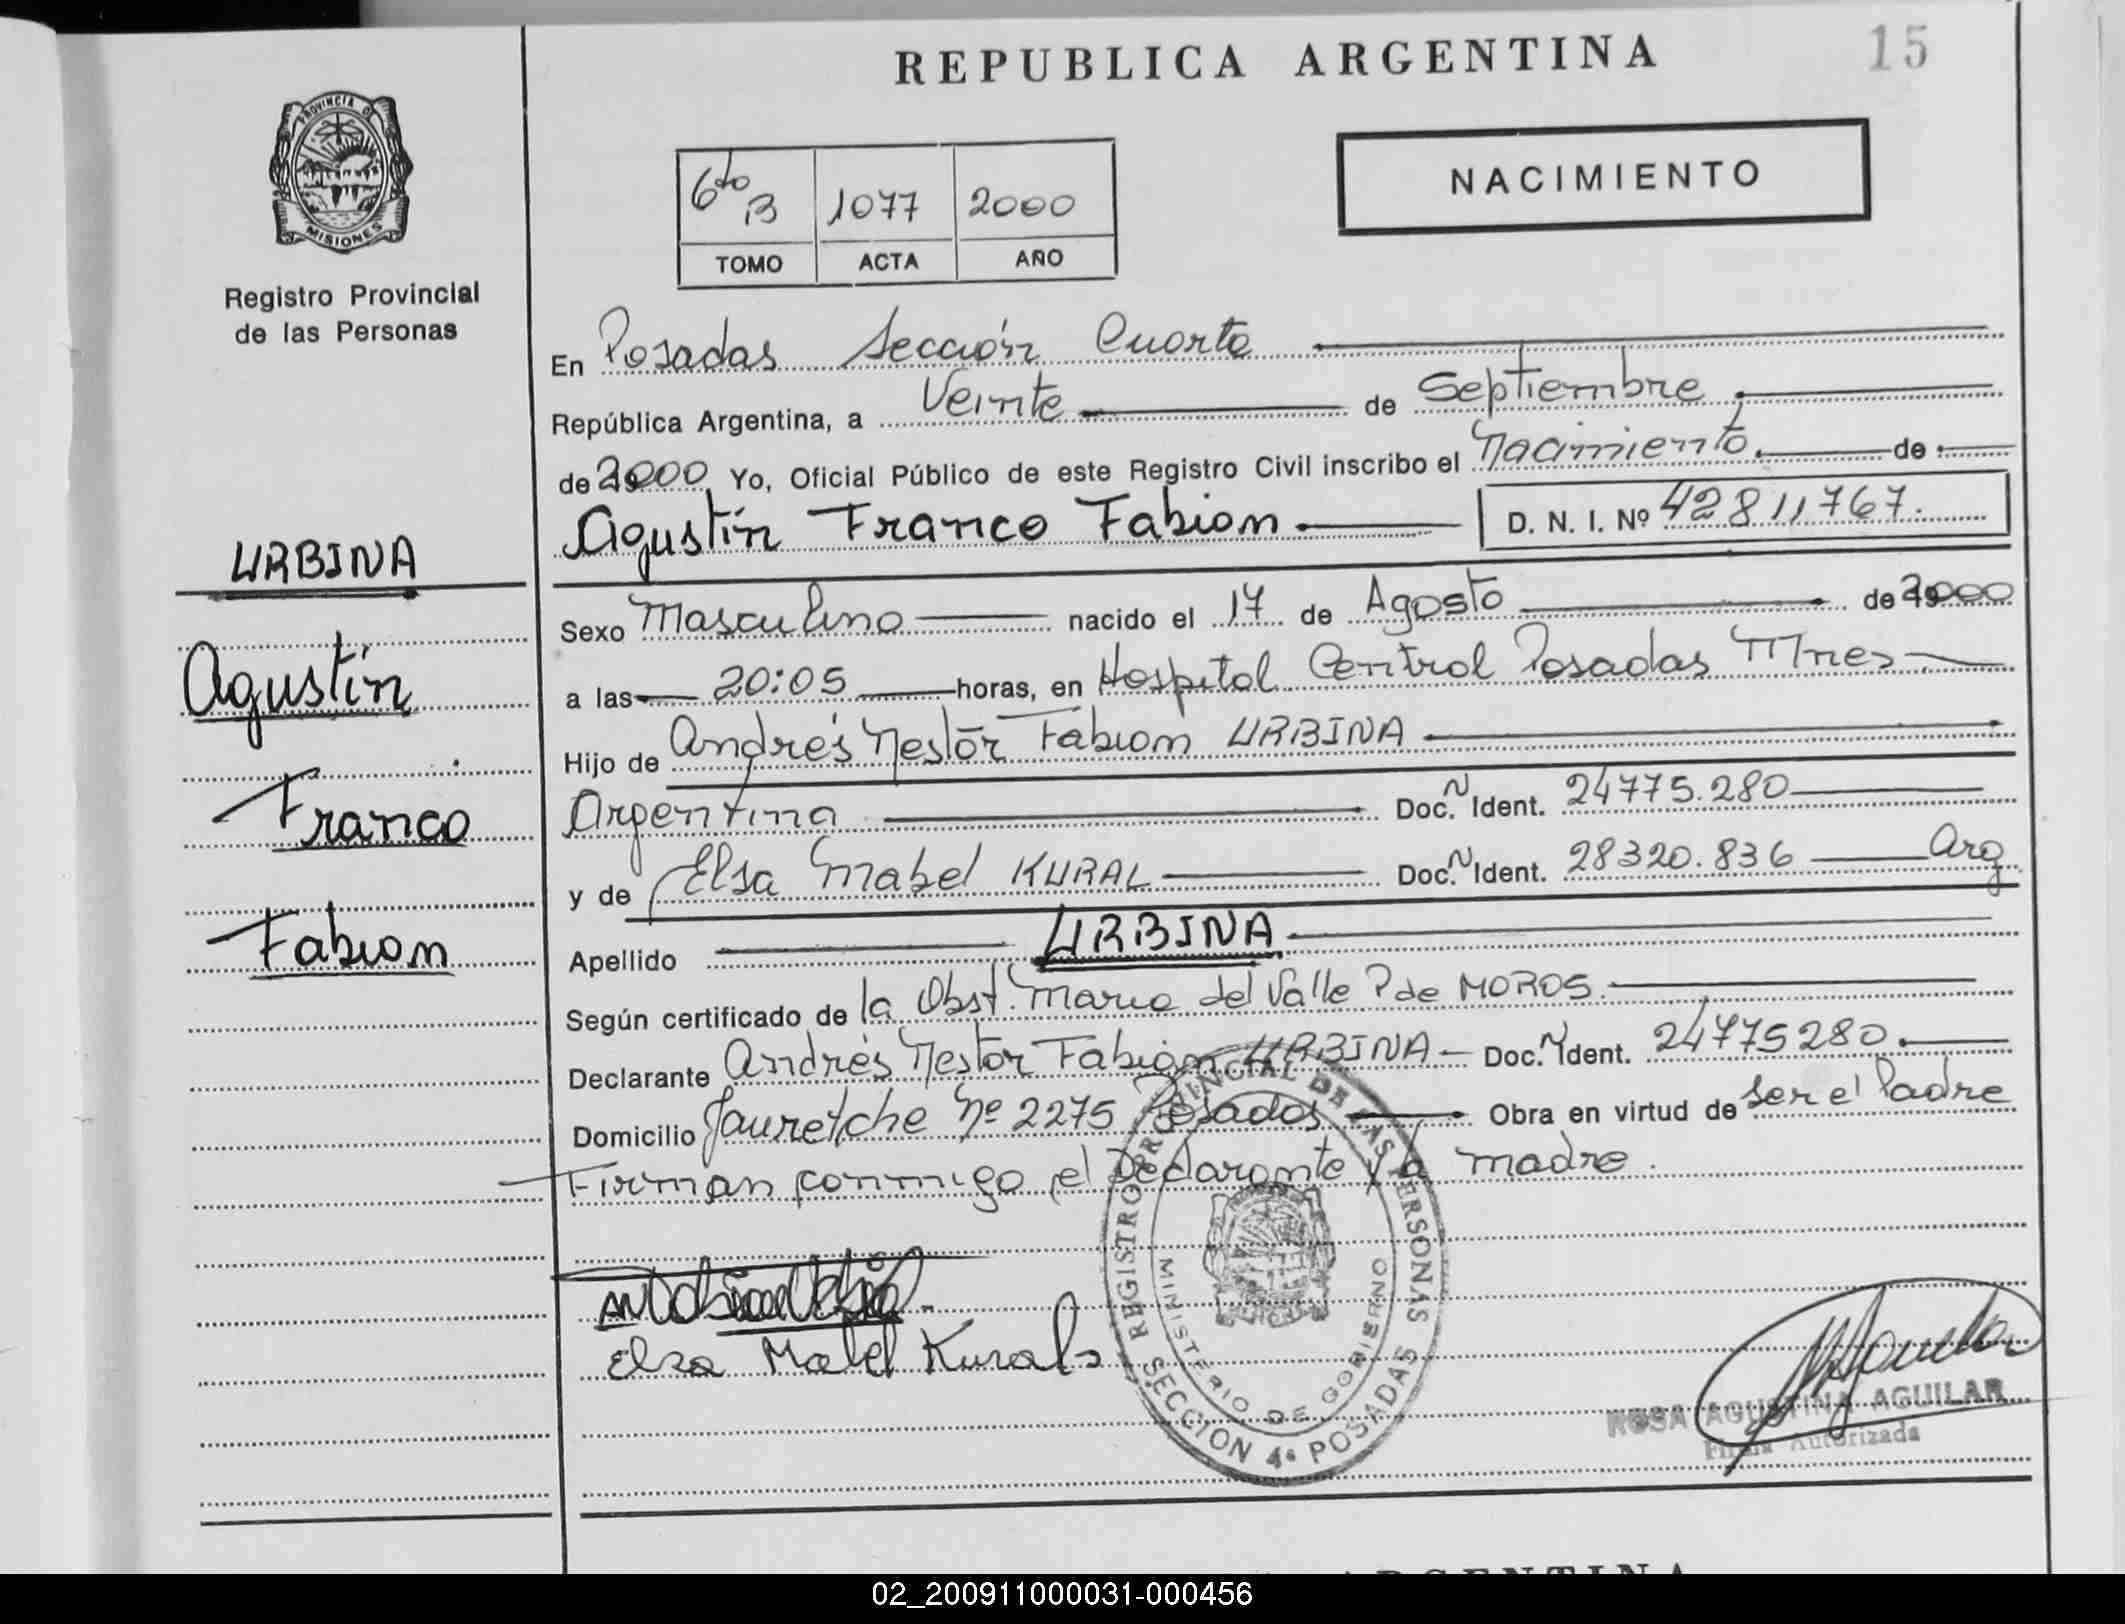 REPUBLICA ARGENTINA
15
PROVINCIA DE
MISIONES
Registro Provincial
de las Personas
NACIMIENTO
6to B 1077 2000
TOMO ACTA AÑO
En Posadas Sección Cuarta
República Argentina, a Veinte de Septiembre
de 2000 Yo, Oficial Público de este Registro Civil inscribo el Nacimiento de
Agustín Franco Fabian D. N. I. Nº 42811767.
URBINA
Sexo Masculino nacido el 17 de Agosto de 2000
Agustín
a las 20:05 horas, en Hospital Central Posadas Mnes
Hijo de Andrés Nestor Fabian URBINA
Franco
Argentina Doc. N Ident. 24775.280
y de Elsa Mabel KURAL Doc. N Ident. 28320.836 Arg
Fabian
Apellido URBINA
Según certificado de la Obst. Maria del Valle P de MOROS.
Declarante Andrés Nestor Fabian URBINA Doc. N Ident. 24775280.
Domicilio Jauretche Nº 2275 Posadas Obra en virtud de ser el Padre
Firman conmigo el Declarante y la madre.
REGISTRO PROVINCIAL DE LAS PERSONAS
MINISTERIO DE GOBIERNO
SECCION 4ª POSADAS
Elsa Mabel Kural
ROSA AGUSTINA AGUILAR
Firma Autorizada
ARGENTINA
02_200911000031-000456